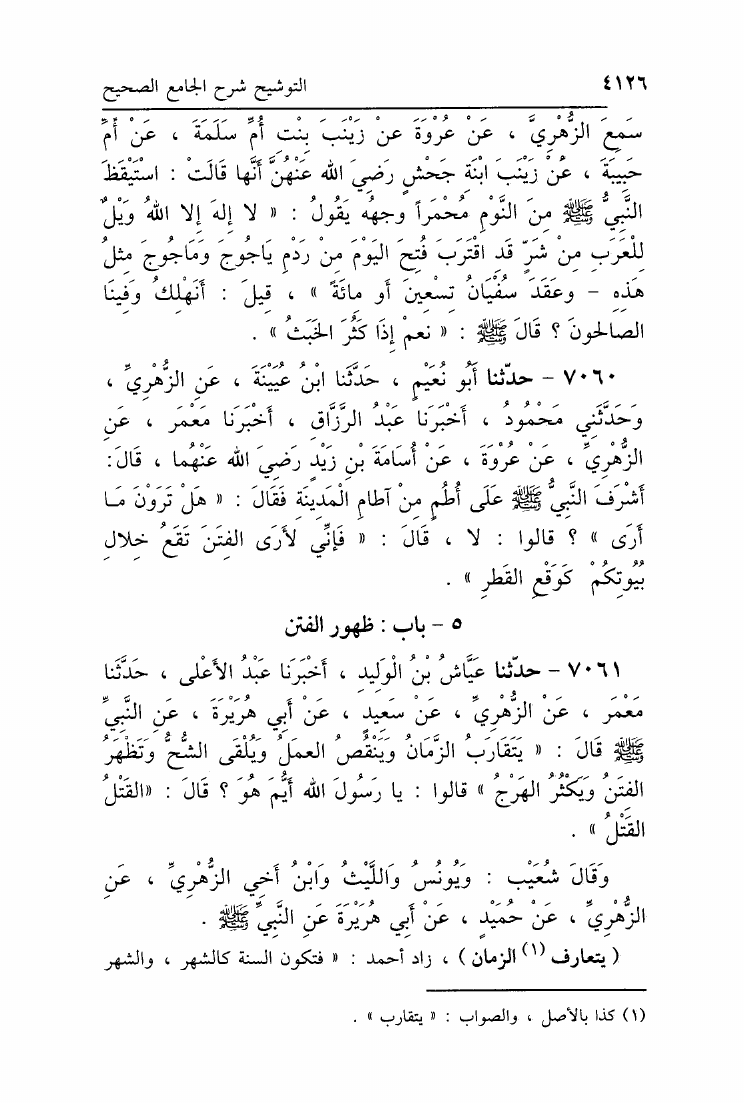 ٤١٢٦ التوشيح شرح الجامع الصحيح
سَمِعَ الزُّهْرِيَّ ، عَنْ عُرْوَةَ عنْ زَيْنَبَ بِنْتِ أُمِّ سَلَمَةَ ، عَنْ أُمِّ
حَبِيبَةَ ، عَنْ زَيْنَبَ ابْنَةِ جَحْشٍ رَضِيَ الله عَنْهُنَّ أَنَّها قَالَتْ : اسْتَيْقَظَ
النَّبِيُّ ﷺ مِنَ النَّوْمِ مُحْمَراً وجهُه يَقُولُ : « لا إلهَ إلا اللهُ وَيْلٌ
لِلْعَرَبِ مِنْ شَرٍّ قَدِ اقْتَرَبَ فُتِحَ اليَوْمَ مِنْ رَدْمِ يَاجُوجَ وَمَاجُوجَ مثلُ
هذه – وعَقَدَ سُفْيَانُ تِسْعِينَ أو مِائَةً » ، قيلَ : أَنَهْلِكُ وَفِينَا
الصالحونَ ؟ قَالَ ﷺ : « نعمْ إِذَا كَثُرَ الخَبَثُ » .
٧٠٦٠ – حدّثنا أَبُو نُعَيْمٍ ، حَدَّثَنا ابْنُ عُيَيْنَةَ ، عَنِ الزُّهْرِيِّ ،
وَحَدَّثَنِي مَحْمُودُ ، أَخْبَرَنَا عَبْدُ الرَّزَّاقِ ، أَخْبَرَنَا مَعْمَر ، عَنِ
الزُّهْرِيِّ ، عَنْ عُرْوَةَ ، عَنْ أُسَامَةَ بْنِ زَيْدٍ رَضِيَ الله عَنْهُما ، قَالَ:
أَشْرَفَ النَّبِيُّ ﷺ عَلَى أُطُمٍ مِنْ آطامِ الْمَدِينَةِ فَقَالَ : « هَلْ تَرَوْنَ مَا
أَرَى » ؟ قالوا : لا ، قَالَ : « فَإِنِّي لأَرَى الفِتَنَ تَقَعُ خِلالِ
بُيُوتِكُمْ كَوَقْعِ القَطرِ » .
٥ – باب : ظهور الفتن
٧٠٦١ – حدّثنا عَيَّاشُ بْنُ الْوَلِيدِ ، أَخْبَرَنَا عَبْدُ الأَعْلى ، حَدَّثَنا
مَعْمَر ، عَنِ الزُّهْرِيِّ ، عَنْ سَعِيدٍ ، عَنْ أَبِي هُرَيْرَةَ ، عَنِ النَّبِيِّ
ﷺ قَالَ : « يَتَقَارَبُ الزَّمَانُ وَيَنْقُصُ العمَلُ وَيُلْقَى الشُّحُّ وَتَظْهَرُ
الفِتَنُ وَيَكْثُرُ الهَرْجُ » قالوا : يا رَسُولَ الله أَيُّمَ هُوَ ؟ قَالَ : «القَتْلُ
القَتْلُ » .
وَقَالَ شُعَيْب : وَيُونُسُ وَاللَّيْثُ وَابْنُ أَخِي الزُّهْرِيِّ ، عَنِ
الزُّهْرِيِّ ، عَنْ حُمَيْدٍ ، عَنْ أَبِي هُرَيْرَةَ عَنِ النَّبِيِّ ﷺ .
( يتعارف (١) الزمان ) ، زاد أحمد : « فتكون السنة كالشهر ، والشهر
(١) كذا بالأصل ، والصواب : « يتقارب » .